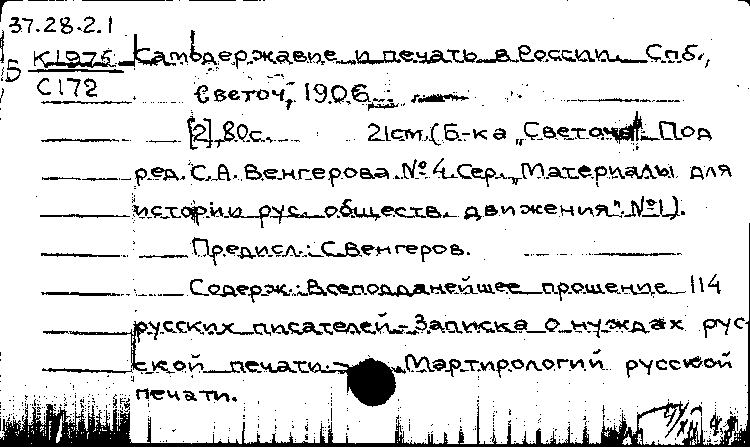 37.28.2.1
Б К1975 Самодержавие и печать в России. Спб.,
С172 Светоч, 1906.
[2], 80с. 21см. (Б-ка „Светоча". Под
ред. С.А. Венгерова. № 4. Сер. „Материалы для
истории рус. обществ. движения". №1).
Предисл.: С. Венгеров.
Содерж.: Всеподданейшее прошение 114
русских писателей.- Записка о нуждах рус-
ской печати.- Мартирологий русской
печати.